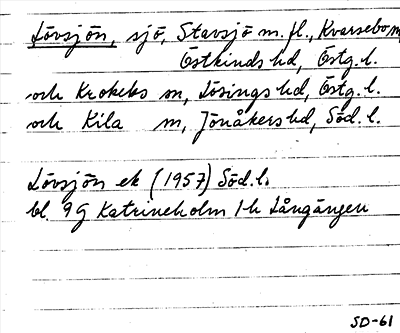 Lövsjön, sjö, Stavsjö m.fl., Kvarsebo m,
Östkinds hd, Östg. l.
och Krokeks m, Lösings hd, Östg. l.
och Kila m, Jönåkers hd, Söd. l.
Lövsjön ek (1957) Söd. l.
bl. 9G Katrineholm 1-h Långängen
SD-61